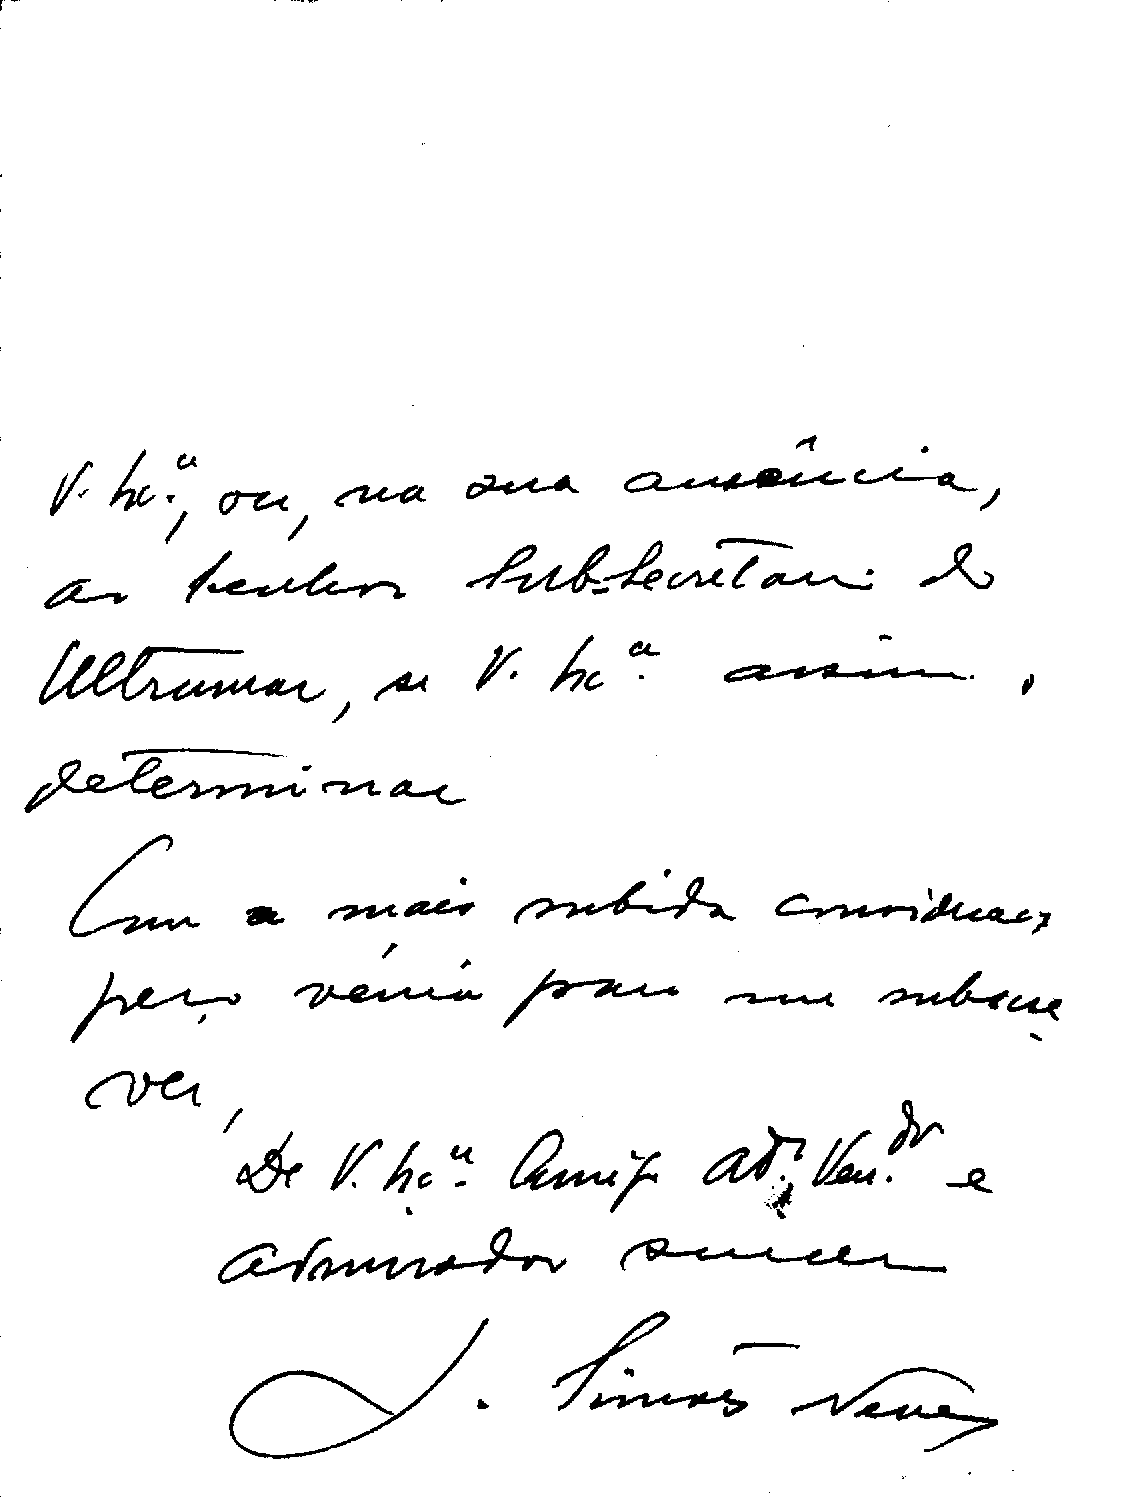 V. Exª., ou, na sua ausência,
ao Senhor Sub-Secretario do
Ultramar, se V. Exª. assim o
determinar
Com a mais subida consideração
peço vénia para me subscre
ver,
De V. Exª. Amigo Atº. Ven.dr e
admirador sincero
J. Simões Neves